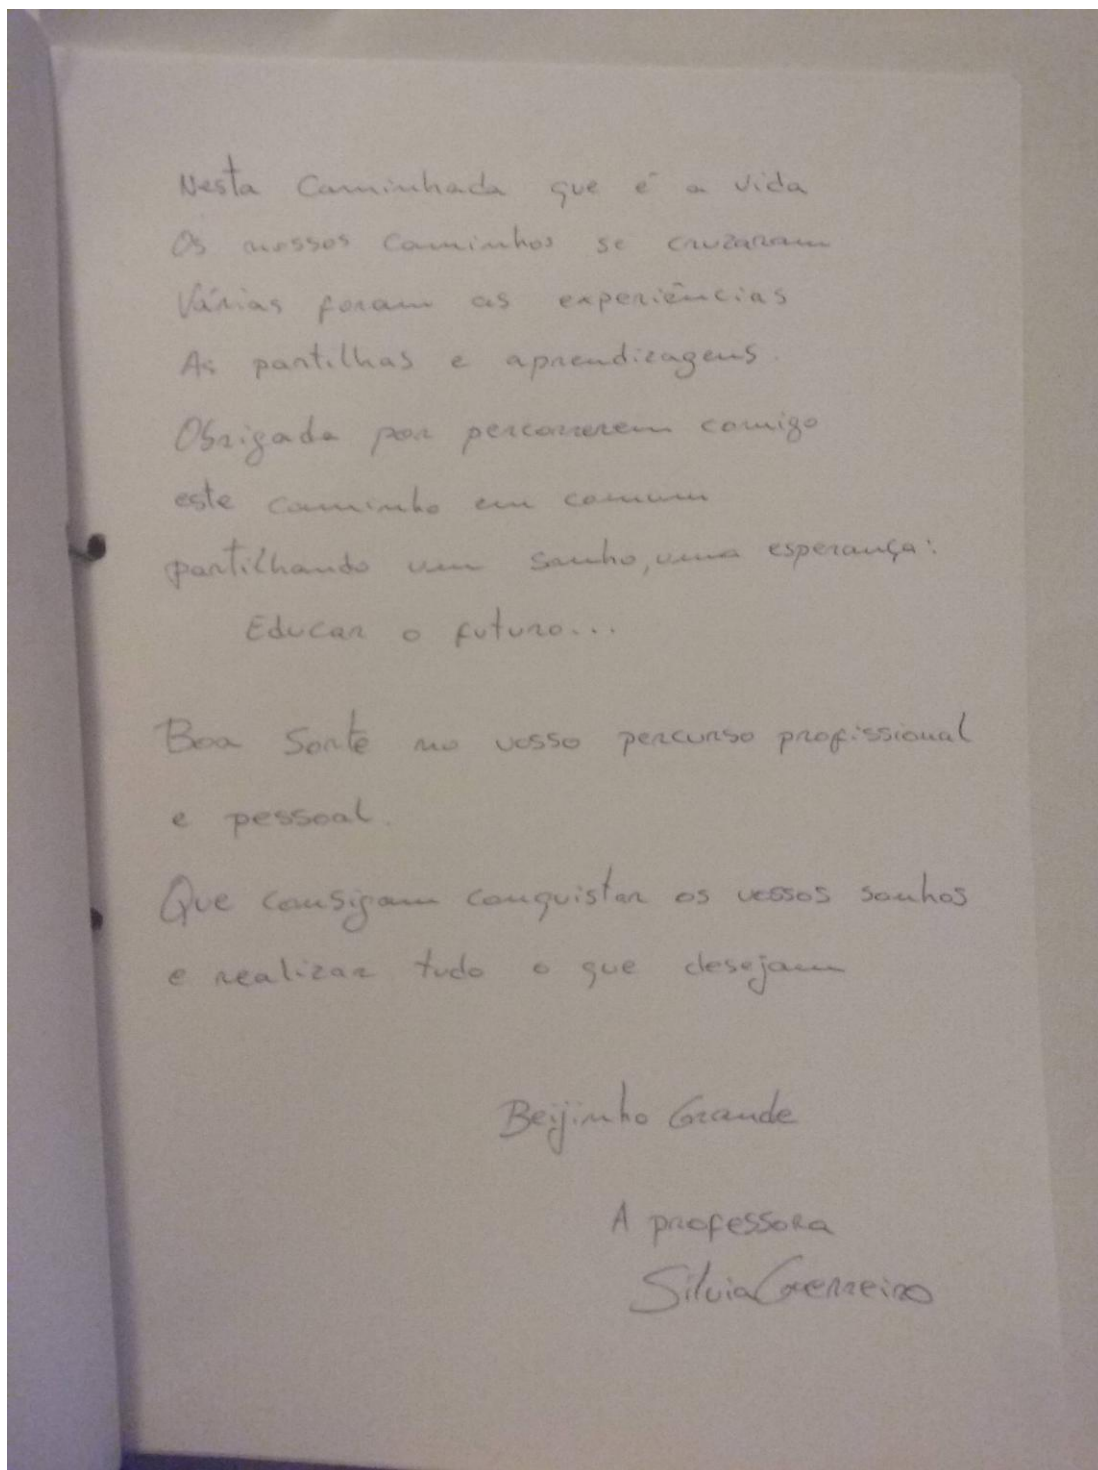 Nesta Caminhada que é a vida
Os nossos caminhos se cruzaram
Várias foram as experiências
As partilhas e aprendizagens.
Obrigada por percorrerem comigo
este caminho em comum
partilhando um sonho, uma esperança:
Educar o futuro...
Boa Sorte no vosso percurso profissional
e pessoal.
Que consigam conquistar os vossos sonhos
e realizar tudo o que desejam
Beijinho Grande
A professora
Silvia Guerreiro